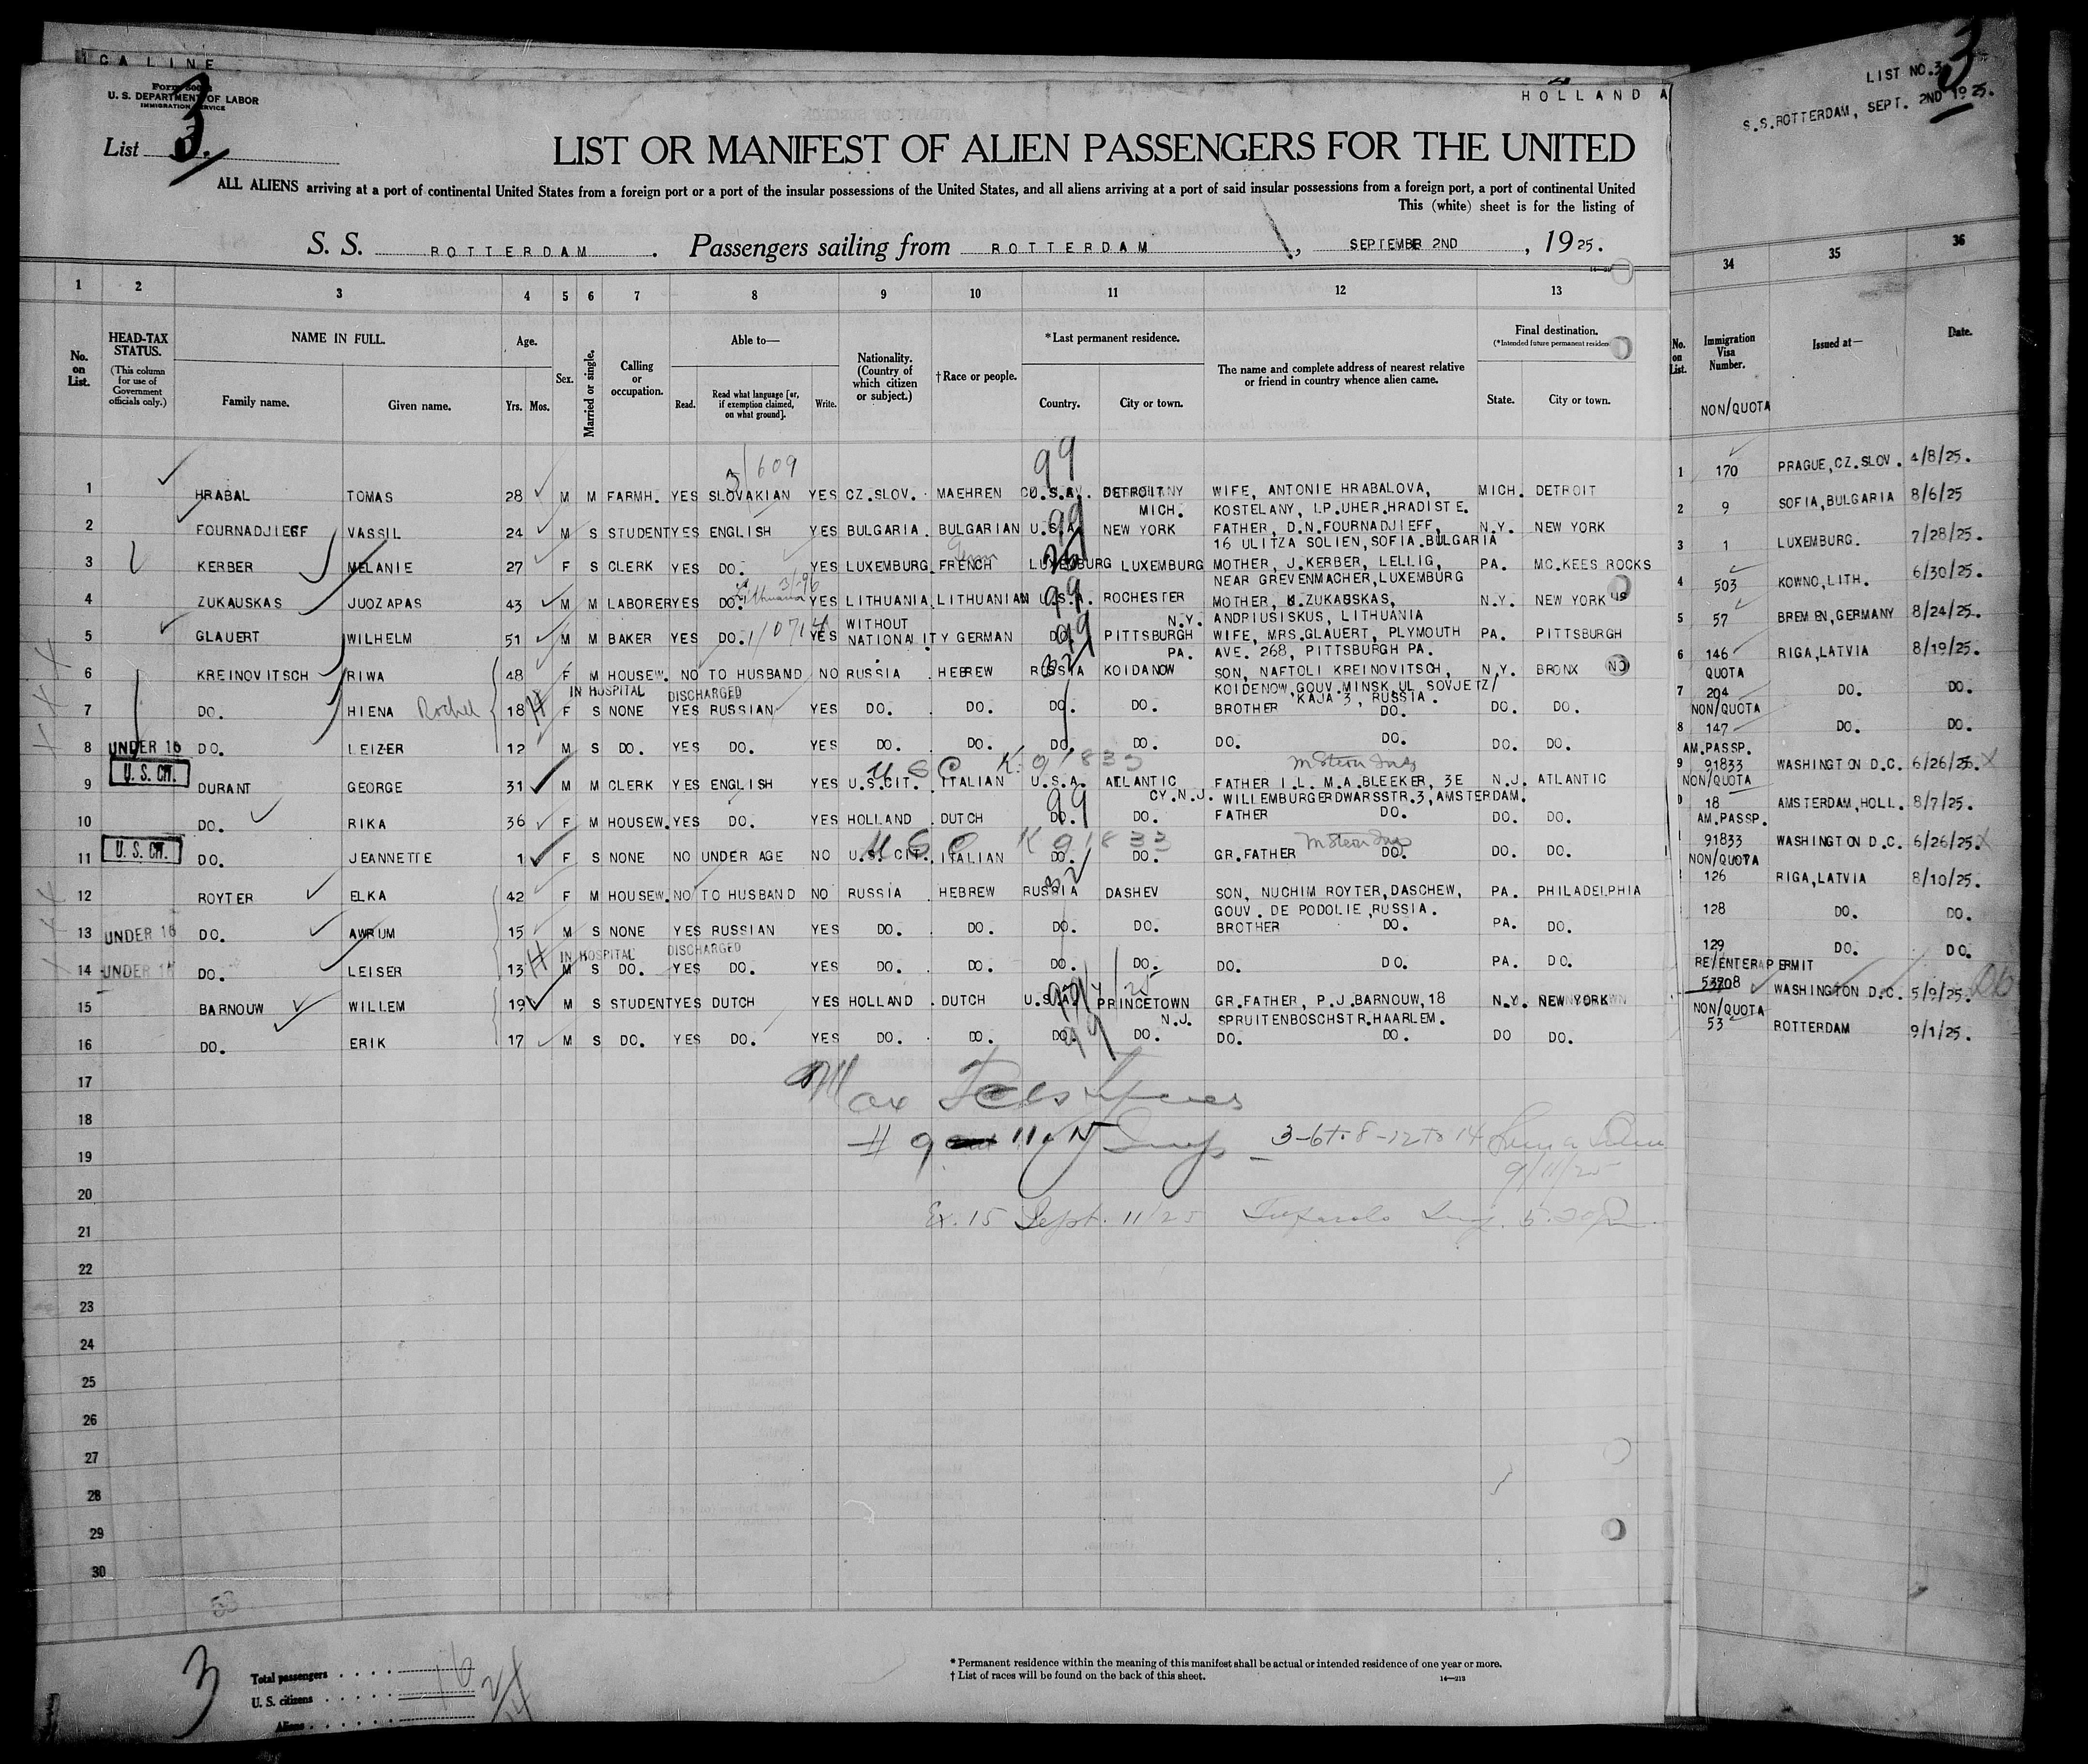 ICA LINE
HOLLAND A
U. S. DEPARTMENT OF LABOR
IMMIGRATION SERVICE
List 3.
LIST OR MANIFEST OF ALIEN PASSENGERS FOR THE UNITED
ALL ALIENS arriving at a port of continental United States from a foreign port or a port of the insular possessions of the United States, and all aliens arriving at a port of said insular possessions from a foreign port, a port of continental United
This (white) sheet is for the listing of
S. S. ROTTERDAM. Passengers sailing from ROTTERDAM, SEPTEMBER 2ND, 1925.
LIST NO.3
S.S.ROTTERDAM, SEPT. 2ND 1925.
1 2 3 4 5 6 7 8 9 10 11 12 13 34 35 36
No. on List.
HEAD-TAX STATUS.
(This column for use of Government officials only.)
NAME IN FULL.
Family name. Given name.
Age.
Yrs. Mos.
Sex.
Married or single.
Calling or occupation.
Able to—
Read. Read what language [or, if exemption claimed, on what ground]. Write.
Nationality. (Country of which citizen or subject.)
†Race or people.
*Last permanent residence.
Country. City or town.
The name and complete address of nearest relative or friend in country whence alien came.
Final destination.
(*Intended future permanent residence
State. City or town.
No. on List.
Immigration Visa Number.
Issued at—
Date.
NON/QUOTA
3/609 99
1 HRABAL TOMAS 28 M M FARMH. YES SLOVAKIAN YES CZ.SLOV. MAEHREN U.S.A. DETROIT WIFE, ANTONIE HRABALOVA, MICH. DETROIT 1 170 PRAGUE,CZ.SLOV. 4/8/25.
MICH. KOSTELANY, I.P.UHER.HRADISTE.
2 FOURNADJIEFF VASSIL 24 M S STUDENT YES ENGLISH YES BULGARIA. BULGARIAN U.S.A. NEW YORK FATHER, D.N.FOURNADJIEFF, N.Y. NEW YORK 2 9 SOFIA,BULGARIA 8/6/25
16 ULITZA SOLIEN,SOFIA.BULGARIA
3 KERBER MELANIE 27 F S CLERK YES DO. YES LUXEMBURG. FRENCH LUXEMBURG LUXEMBURG MOTHER, J.KERBER, LELLIG, PA. MC.KEES ROCKS 3 1 LUXEMBURG. 7/28/25.
NEAR GREVENMACHER,LUXEMBURG
4 ZUKAUSKAS JUOZAPAS 43 M M LABORER YES DO. Lithuanian YES LITHUANIA. LITHUANIAN U.S.A. ROCHESTER MOTHER, ZUKAUSKAS, N.Y. NEW YORK 4 503 KOWNO,LITH. 6/30/25.
N.Y. ANDRIUSISKUS, LITHUANIA
5 GLAUERT WILHELM 51 M M BAKER YES DO. YES WITHOUT NATIONALITY GERMAN DO. PITTSBURGH WIFE, MRS.GLAUERT, PLYMOUTH PA. PITTSBURGH 5 57 BREMEN,GERMANY 8/24/25.
PA. AVE. 268, PITTSBURGH PA.
6 KREINOVITSCH RIWA 48 F M HOUSEW. NO TO HUSBAND NO RUSSIA HEBREW RUSSIA KOIDANOW SON, NAFTOLI KREINOVITSCH, N.Y. BRONX 6 146 RIGA,LATVIA 8/19/25.
IN HOSPITAL DISCHARGED KOIDENOW,GOUV.MINSK UL SOVJETZ/ QUOTA
KAJA 3, RUSSIA.
7 DO. HIENA Rochel 18 F S NONE YES RUSSIAN YES DO. DO. DO. DO. BROTHER DO. DO. DO. 7 204 DO. DO.
NON/QUOTA
8 UNDER 16 DO. LEIZER 12 M S DO. YES DO. YES DO. DO. DO. DO. DO. DO. DO. DO. 8 147 DO. DO.
AM.PASSP.
U S C K. 91833
9 U. S. CIT. DURANT GEORGE 31 M M CLERK YES ENGLISH YES U.S.CIT. ITALIAN U.S.A. ATLANTIC FATHER I.L. M.A.BLEEKER, 3E N.J. ATLANTIC 9 91833 WASHINGTON D.C. 6/26/25.
CY.N.J. WILLEMBURGERDWARSSTR.3,AMSTERDAM. NON/QUOTA
10 DO. RIKA 36 F M HOUSEW. YES DO. YES HOLLAND DUTCH DO. DO. FATHER DO. DO. DO. 18 AMSTERDAM,HOLL. 8/7/25.
AM.PASSP.
U S C K 91833
11 U. S. CIT. DO. JEANNETTE 1 F S NONE NO UNDER AGE NO U.S. CIT. ITALIAN DO. DO. GR.FATHER DO. DO. DO. 91833 WASHINGTON D.C. 6/26/25.
NON/QUOTA
12 ROYTER ELKA 42 F M HOUSEW. NO TO HUSBAND NO RUSSIA HEBREW RUSSIA DASHEV SON, NUCHIM ROYTER,DASCHEW, PA. PHILADELPHIA 126 RIGA,LATVIA 8/10/25.
GOUV. DE PODOLIE,RUSSIA.
13 UNDER 16 DO. AWRUM 15 M S NONE YES RUSSIAN YES DO. DO. DO. DO. BROTHER DO. PA. DO. 128 DO. DO.
IN HOSPITAL DISCHARGED
14 UNDER 16 DO. LEISER 13 M S DO. YES DO. YES DO. DO. DO. DO. DO. DO. PA. DO. 129 DO. DO.
RE/ENTER PERMIT
15 BARNOUW WILLEM 19 M S STUDENT YES DUTCH YES HOLLAND DUTCH U.S.A. PRINCETOWN GR.FATHER, P.J.BARNOUW,18 N.Y. NEW YORK WASHINGTON D.C. 5/9/25.
N.J. SPRUITENBOSCHSTR.HAARLEM. NON/QUOTA
16 DO. ERIK 17 M S DO. YES DO. YES DO. DO. DO. DO. DO. DO. DO DO. 53 ROTTERDAM 9/1/25.
17
Max
18
# 9 11 3-6 to 8-12 to 14
19
9/11/25
20
Ex. 15 Sept. 11/25
21
22
23
24
25
26
27
28
29
30
3
Total passengers 16
U. S. citizens
Aliens
* Permanent residence within the meaning of this manifest shall be actual or intended residence of one year or more.
† List of races will be found on the back of this sheet.
14—213